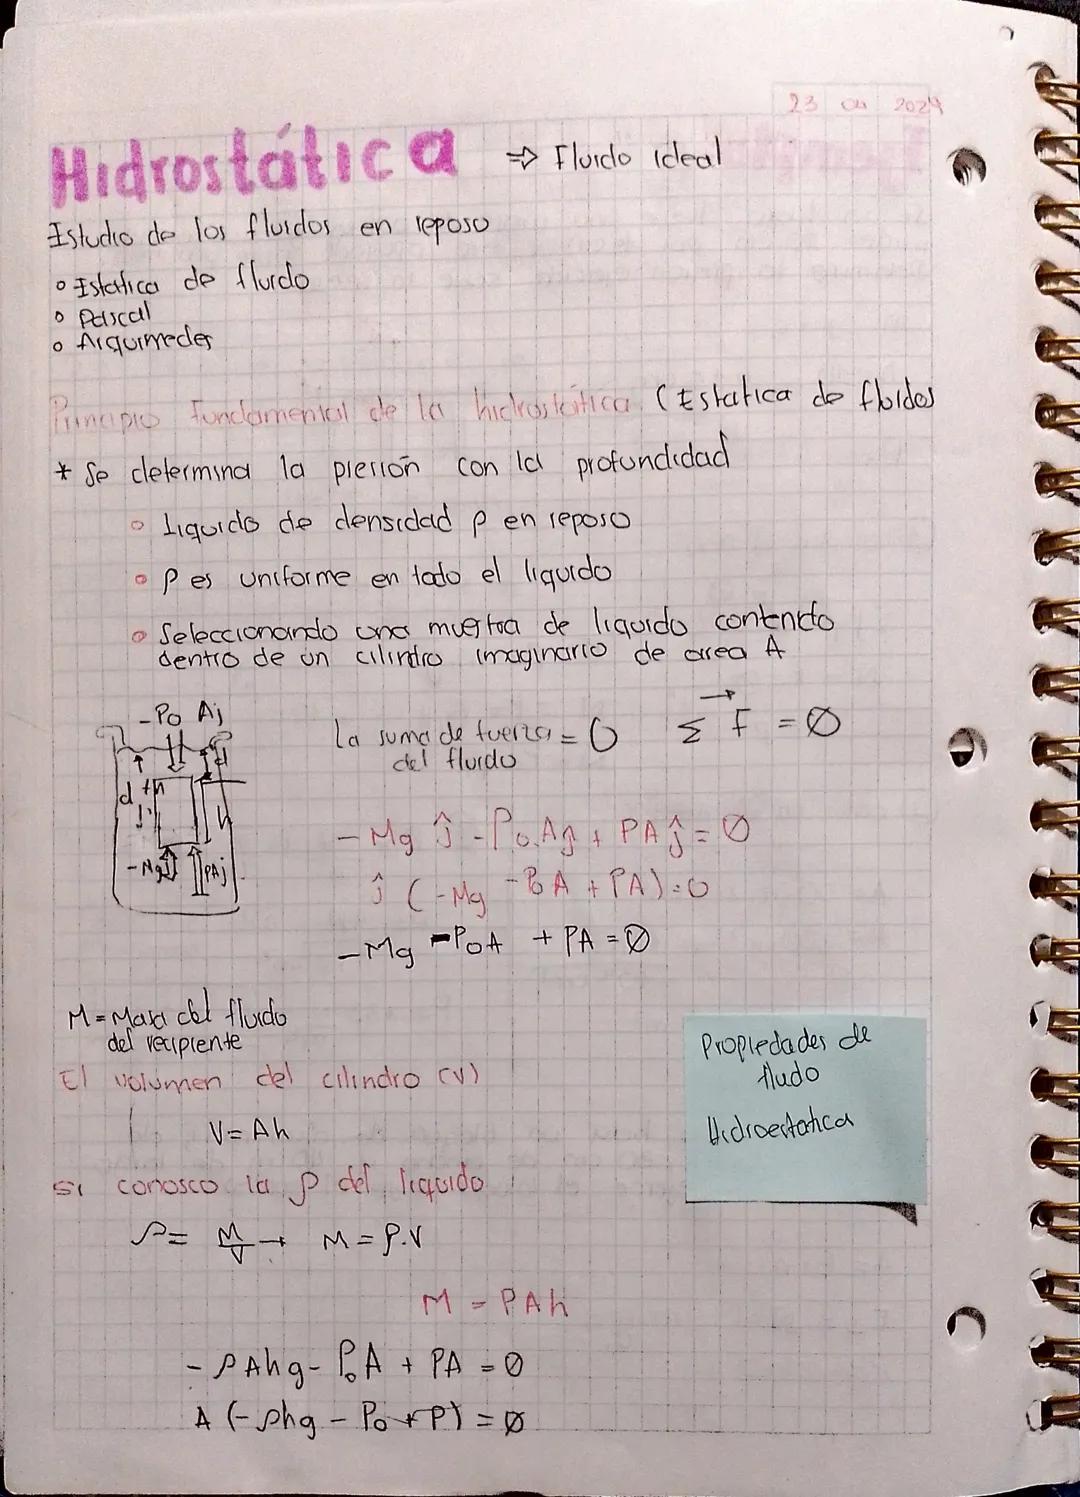 23 04 2024
Hidrostática ⇒ Fluido ideal
Estudio de los fluidos en reposo
° Estatica de fluido
° Pascal
° Arquimedes
Principio fundamental de la hidrostática (Estatica de fluidos
* Se determina la presión con la profundidad
° Liquido de densidad ρ en reposo
° ρ es uniforme en todo el liquido
° Seleccionando una muestra de liquido contenido
dentro de un cilindro imaginario de area A
-Po Aj
d
th
h
-Mgj
PAj
La suma de fuerza = 0 Σ F⃗ = Ø
del fluido
-Mg ĵ - Po.Aĵ + PAĵ = Ø
ĵ (-Mg - PoA + PA) = 0
-Mg - PoA + PA = Ø
M = Masa del fluido
del recipiente
El volumen del cilindro (V)
V = Ah
Propiedades de
fludo
Hidroestatica
si conosco la ρ del liquido
ρ = M/V → M = ρ.V
M = ρAh
-ρAhg - PoA + PA = Ø
A (-ρhg - Po + P) = Ø